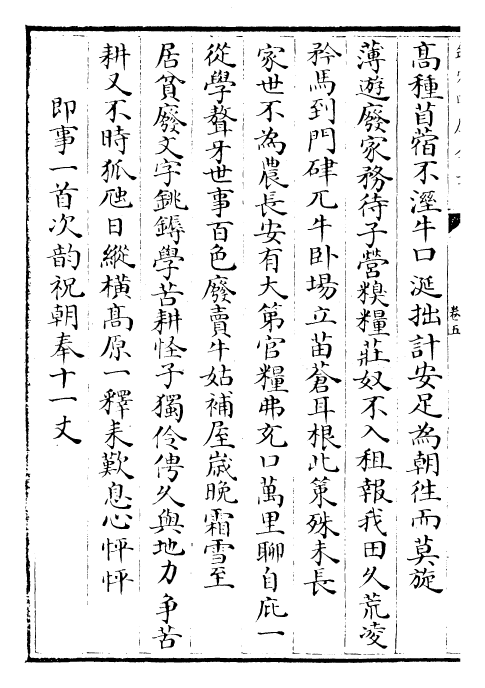 卷五
高種苜蓿不溼牛口涎拙計安足為朝徃而莫旋
薄遊廢家務待子營糗糧莊奴不入租報我田久荒凌
矜馬到門硉兀牛卧場立苗蒼耳根此策殊未長
家世不為農長安有大第官糧弗充口萬里聊自庇一
從學聱牙世事百色廢賣牛姑補屋嵗晚霜雪至
居貧廢文字銚鎒學苦耕怪子獨伶俜久與地力争苦
耕又不時狐兔日縱橫髙原一釋耒歎息心怦怦
即事一首次韵祝朝奉十一丈